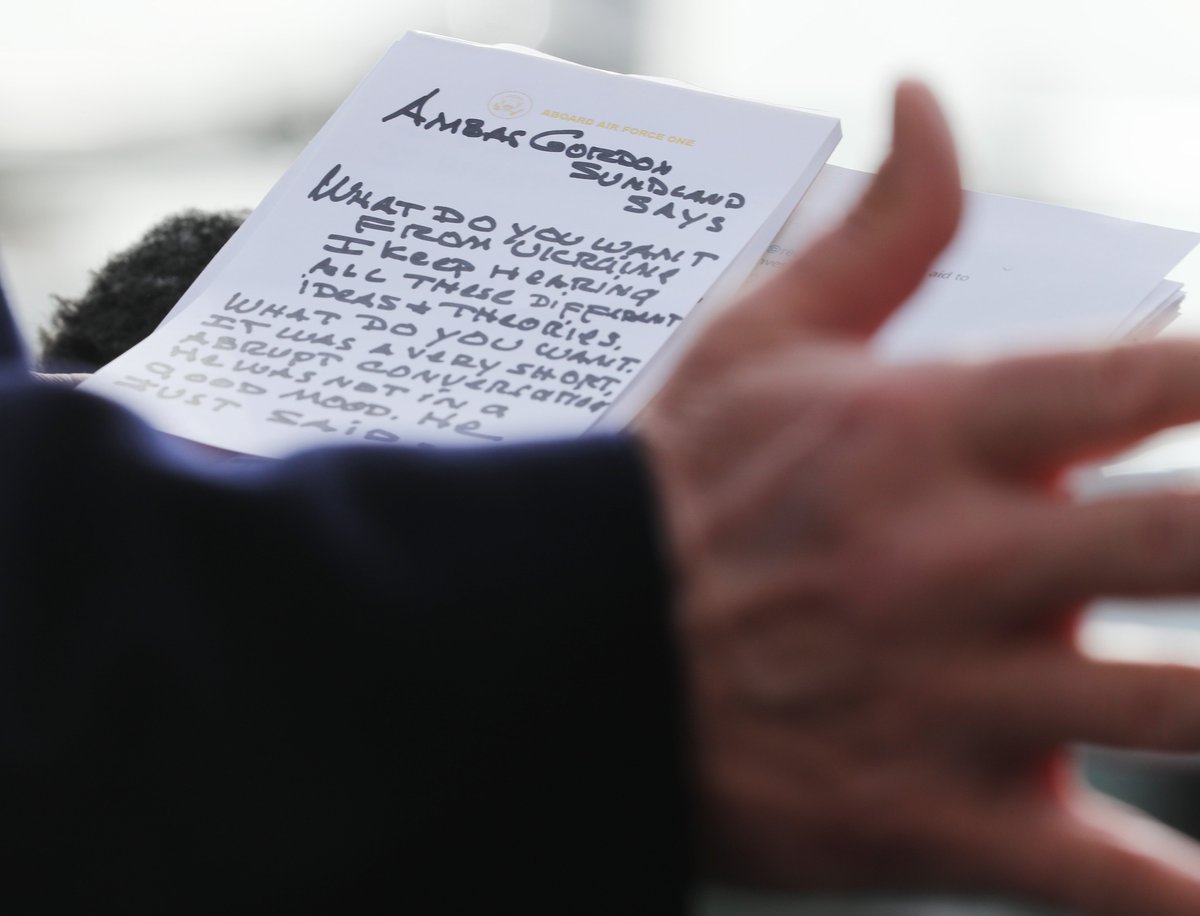 ABOARD AIR FORCE ONE
AMBAS GORDON
SUNDLAND
SAYS
WHAT DO YOU WANT
FROM UKRAINE
I KEEP HEARING
ALL THESE DIFFERENT
IDEAS + THEORIES.
WHAT DO YOU WANT.
IT WAS A VERY SHORT,
ABRUPT CONVERSATION
HE WAS NOT IN A
GOOD MOOD. HE
JUST SAID
aid to